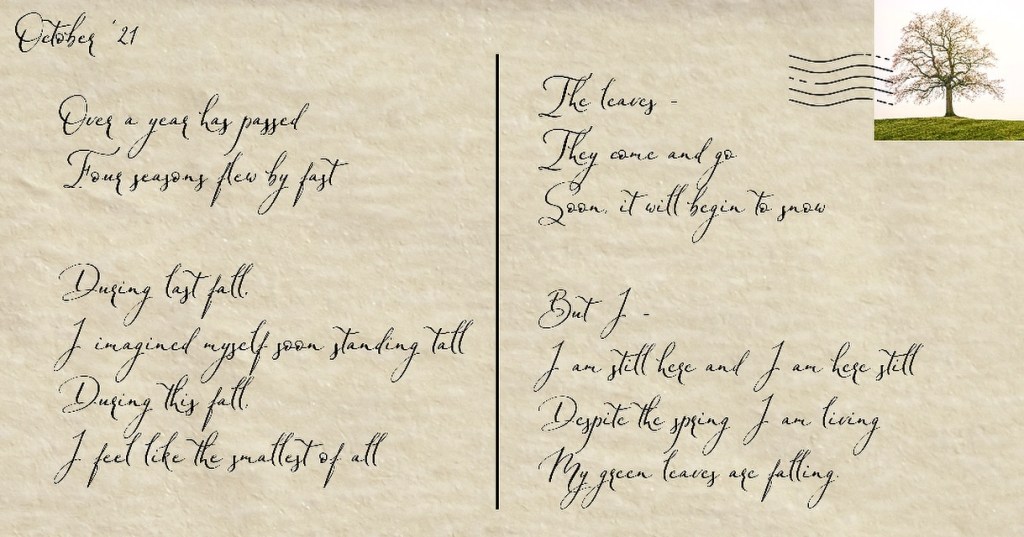 October '21
Over a year has passed
Four seasons flew by fast
During last fall,
I imagined myself soon standing tall
During this fall,
I feel like the smallest of all
The leaves -
They come and go
Soon, it will begin to snow
But I -
I am still here and I am here still
Despite the spring I am living
My green leaves are falling.